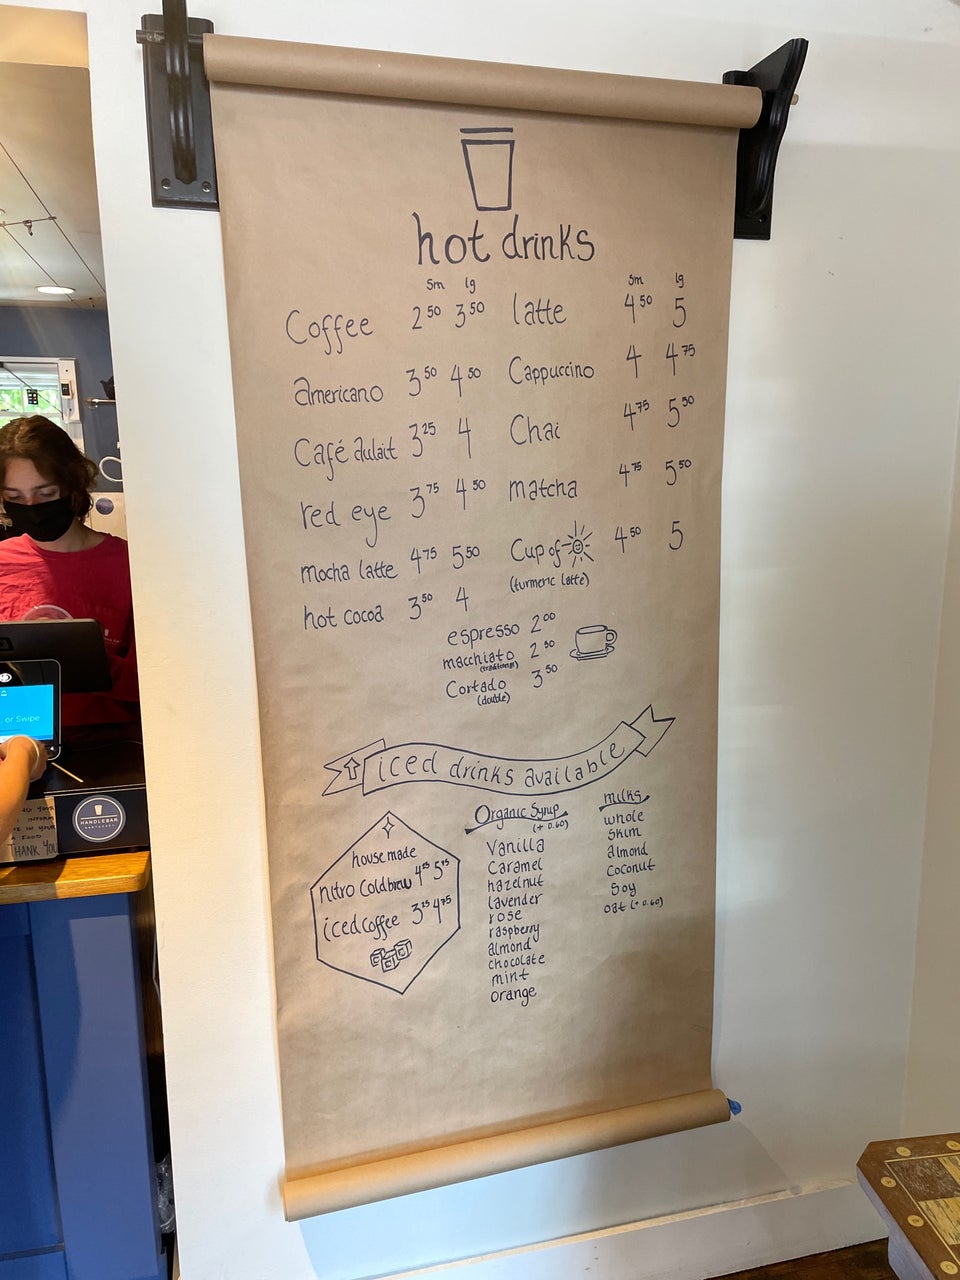 hot drinks
sm lg
Coffee 2 50 3 50
americano 3 50 4 50
Café aulait 3 25 4
red eye 3 75 4 50
mocha latte 4 75 5 50
hot cocoa 3 50 4
sm lg
latte 4 50 5
Cappuccino 4 4 75
Chai 4 75 5 50
matcha 4 75 5 50
Cup of 4 50 5
(turmeric latte)
espresso 2 00
macchiato 2 50
(traditional)
Cortado 3 50
(double)
iced drinks available
house made
nitro Cold brew 4 25 5 75
iced Coffee 3 25 4 75
Organic Syrup
(+ 0.60)
Vanilla
Caramel
hazelnut
lavender
rose
raspberry
almond
chocolate
mint
orange
milks
whole
skim
almond
Coconut
Soy
oat (+ 0.60)
, or Swipe
HANDLEBAR
YOUR
INFORM
IN YOUR
FOOD
THANK YOU